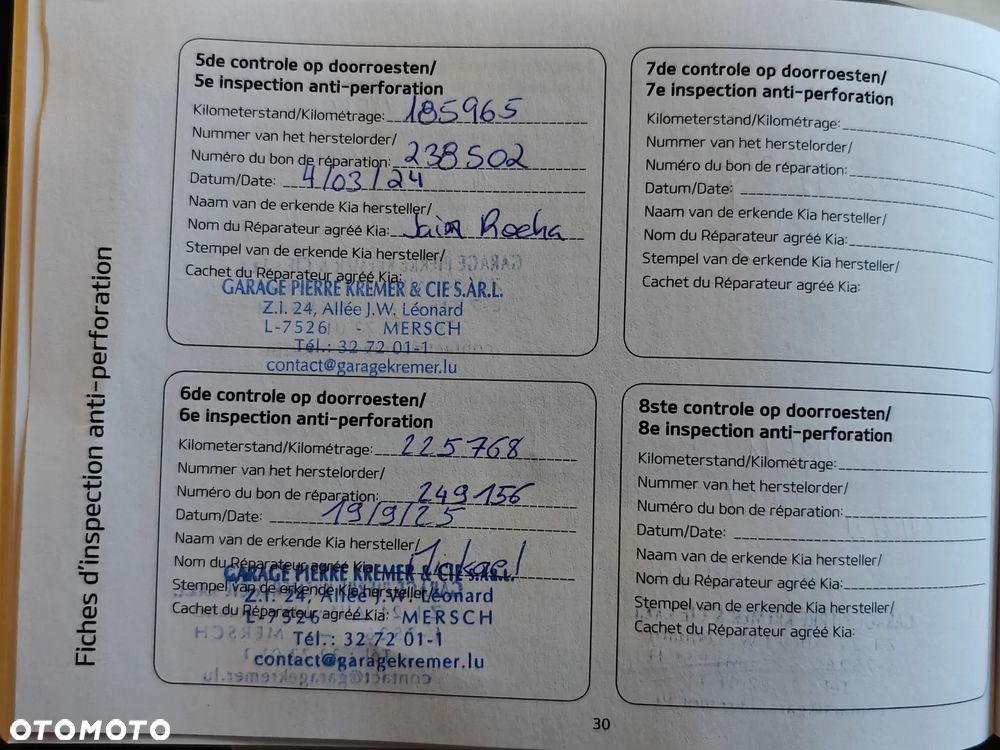 Fiches d'inspection anti-perforation
5de controle op doorroesten/
5e inspection anti-perforation
Kilometerstand/Kilométrage: 185965
Nummer van het herstelorder/
Numéro du bon de réparation: 238502
Datum/Date: 4/03/24
Naam van de erkende Kia hersteller/
Nom du Réparateur agréé Kia: Rocha
Stempel van de erkende Kia hersteller/
Cachet du Réparateur agréé Kia:
GARAGE PIERRE KREMER & CIE S.ÀR.L.
Z.I. 24, Allée J.W. Léonard
L-7526 - MERSCH
Tél.: 32 72 01-1
contact@garagekremer.lu
6de controle op doorroesten/
6e inspection anti-perforation
Kilometerstand/Kilométrage: 225768
Nummer van het herstelorder/
Numéro du bon de réparation: 249156
Datum/Date: 19/9/25
Naam van de erkende Kia hersteller/
Nom du Réparateur agréé Kia:
GARAGE PIERRE KREMER & CIE S.ÀR.L.
Stempel van de erkende Kia hersteller/
Z.I. 24, Allée J.W. Léonard
Cachet du Réparateur agréé Kia:
L-7526 - MERSCH
Tél.: 32 72 01-1
contact@garagekremer.lu
7de controle op doorroesten/
7e inspection anti-perforation
Kilometerstand/Kilométrage:
Nummer van het herstelorder/
Numéro du bon de réparation:
Datum/Date:
Naam van de erkende Kia hersteller/
Nom du Réparateur agréé Kia:
Stempel van de erkende Kia hersteller/
Cachet du Réparateur agréé Kia:
8ste controle op doorroesten/
8e inspection anti-perforation
Kilometerstand/Kilométrage:
Nummer van het herstelorder/
Numéro du bon de réparation:
Datum/Date:
Naam van de erkende Kia hersteller/
Nom du Réparateur agréé Kia:
Stempel van de erkende Kia hersteller/
Cachet du Réparateur agréé Kia:
30
OTOMOTO